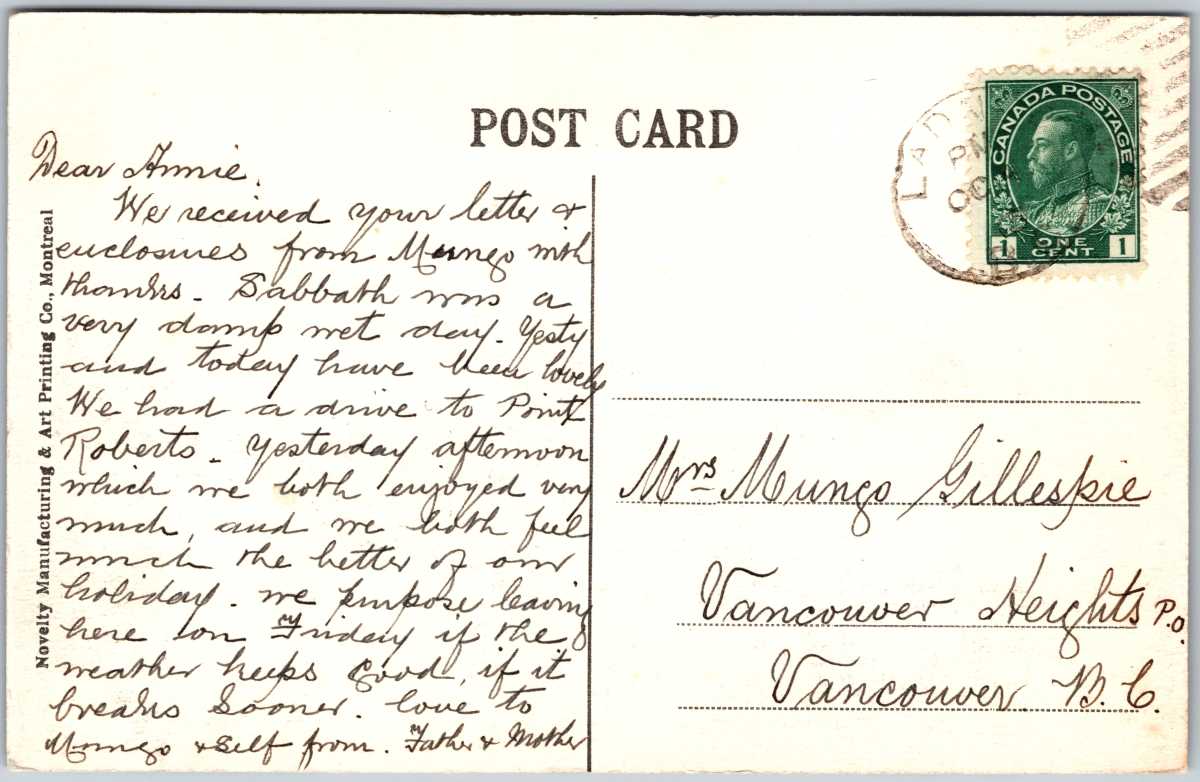 POST CARD
CANADA POSTAGE
1 ONE CENT 1
LAD
PM
OC
Dear Annie.
We received your letter &
enclosures from Mungo with
thanks. Sabbath was a
very damp wet day. Yesty
and today have been lovely
We had a drive to Point
Roberts. Yesterday afternoon
which we both enjoyed very
much, and we both feel
much the better of our
holiday. we purpose leaving
here on Friday if the
weather keeps good, if it
breaks Sooner. love to
Mungo & Self from. Father & Mother
Novelty Manufacturing & Art Printing Co., Montreal
Mrs Mungo Gillespie
Vancouver Heights P.O.
Vancouver. B.C.